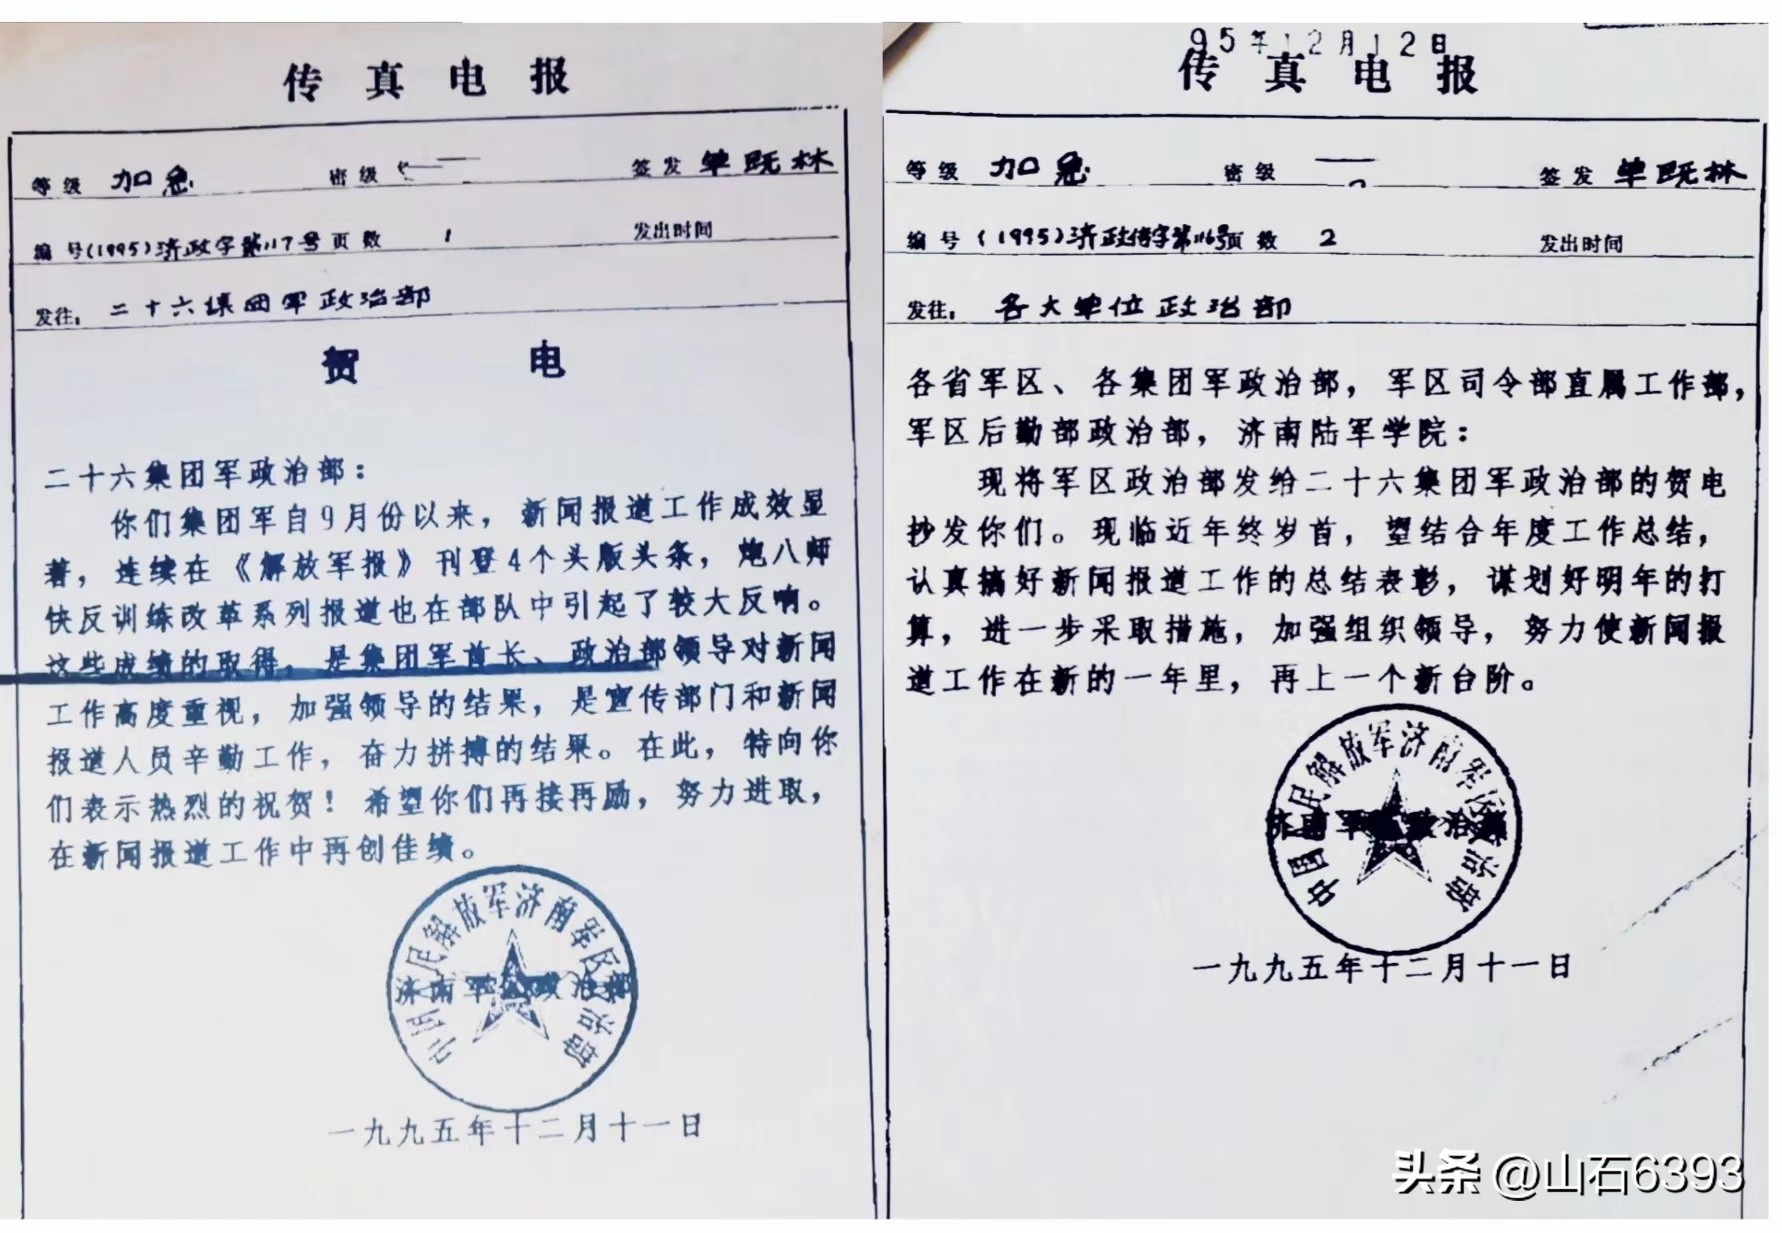 传真电报
等级 加急 密级 签发 单既林
编号(1995)济政字第117号 页数 1 发出时间
发往: 二十六集团军政治部
贺电
二十六集团军政治部:
你们集团军自9月份以来,新闻报道工作成效显
著,连续在《解放军报》刊登4个头版头条,炮八师
快反训练改革系列报道也在部队中引起了较大反响。
这些成绩的取得,是集团军首长、政治部领导对新闻
工作高度重视,加强领导的结果,是宣传部门和新闻
报道人员辛勤工作,奋力拼搏的结果。在此,特向你
们表示热烈的祝贺!希望你们再接再励,努力进取,
在新闻报道工作中再创佳绩。
中国人民解放军济南军区政治部
济南军区政治部
一九九五年十二月十一日
95年12月12日
传真电报
等级 加急 密级 签发 单既林
编号(1995)济政传字第116号 页数 2 发出时间
发往: 各大单位政治部
各省军区、各集团军政治部,军区司令部直属工作部,
军区后勤部政治部,济南陆军学院:
现将军区政治部发给二十六集团军政治部的贺电
抄发你们。现临近年终岁首,望结合年度工作总结,
认真搞好新闻报道工作的总结表彰,谋划好明年的打
算,进一步采取措施,加强组织领导,努力使新闻报
道工作在新的一年里,再上一个新台阶。
中国人民解放军济南军区政治部
济南军区政治部
一九九五年十二月十一日
头条 @山石6393